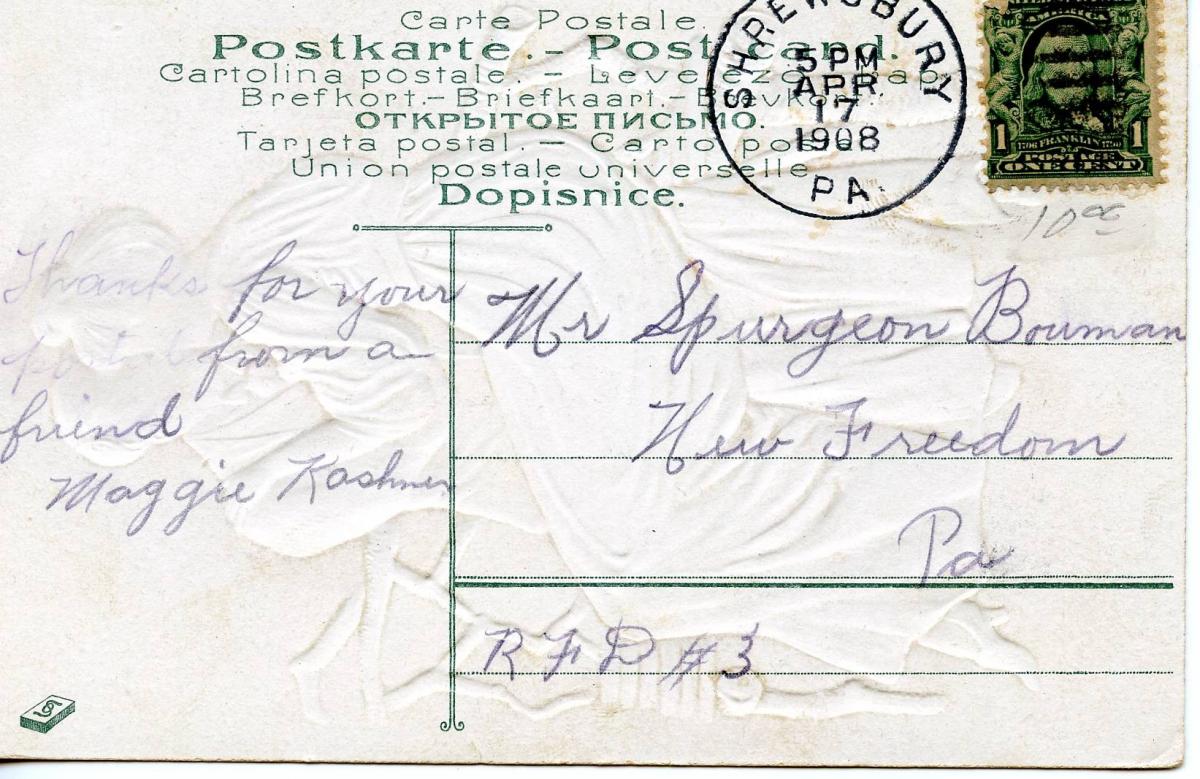 Carte Postale.
Postkarte. - Post card.
Cartolina postale. - Levelezo
Brefkort.- Briefkaart.- Brevkort.
ОТКРЫТОЕ ПИСЬМО.
Tarjeta postal. - Carto
Union postale universelle
Dopisnice.
SHREWSBURY
5 PM
APR.
17
1908
PA.
AMERICA
1 1706 FRANKLIN 1790 1
POSTAGE
ONE CENT
10 00
Thanks for your
from a
friend
Maggie Kashner
Mr Spurgeon Bowman
New Freedom
Pa
R F D # 3